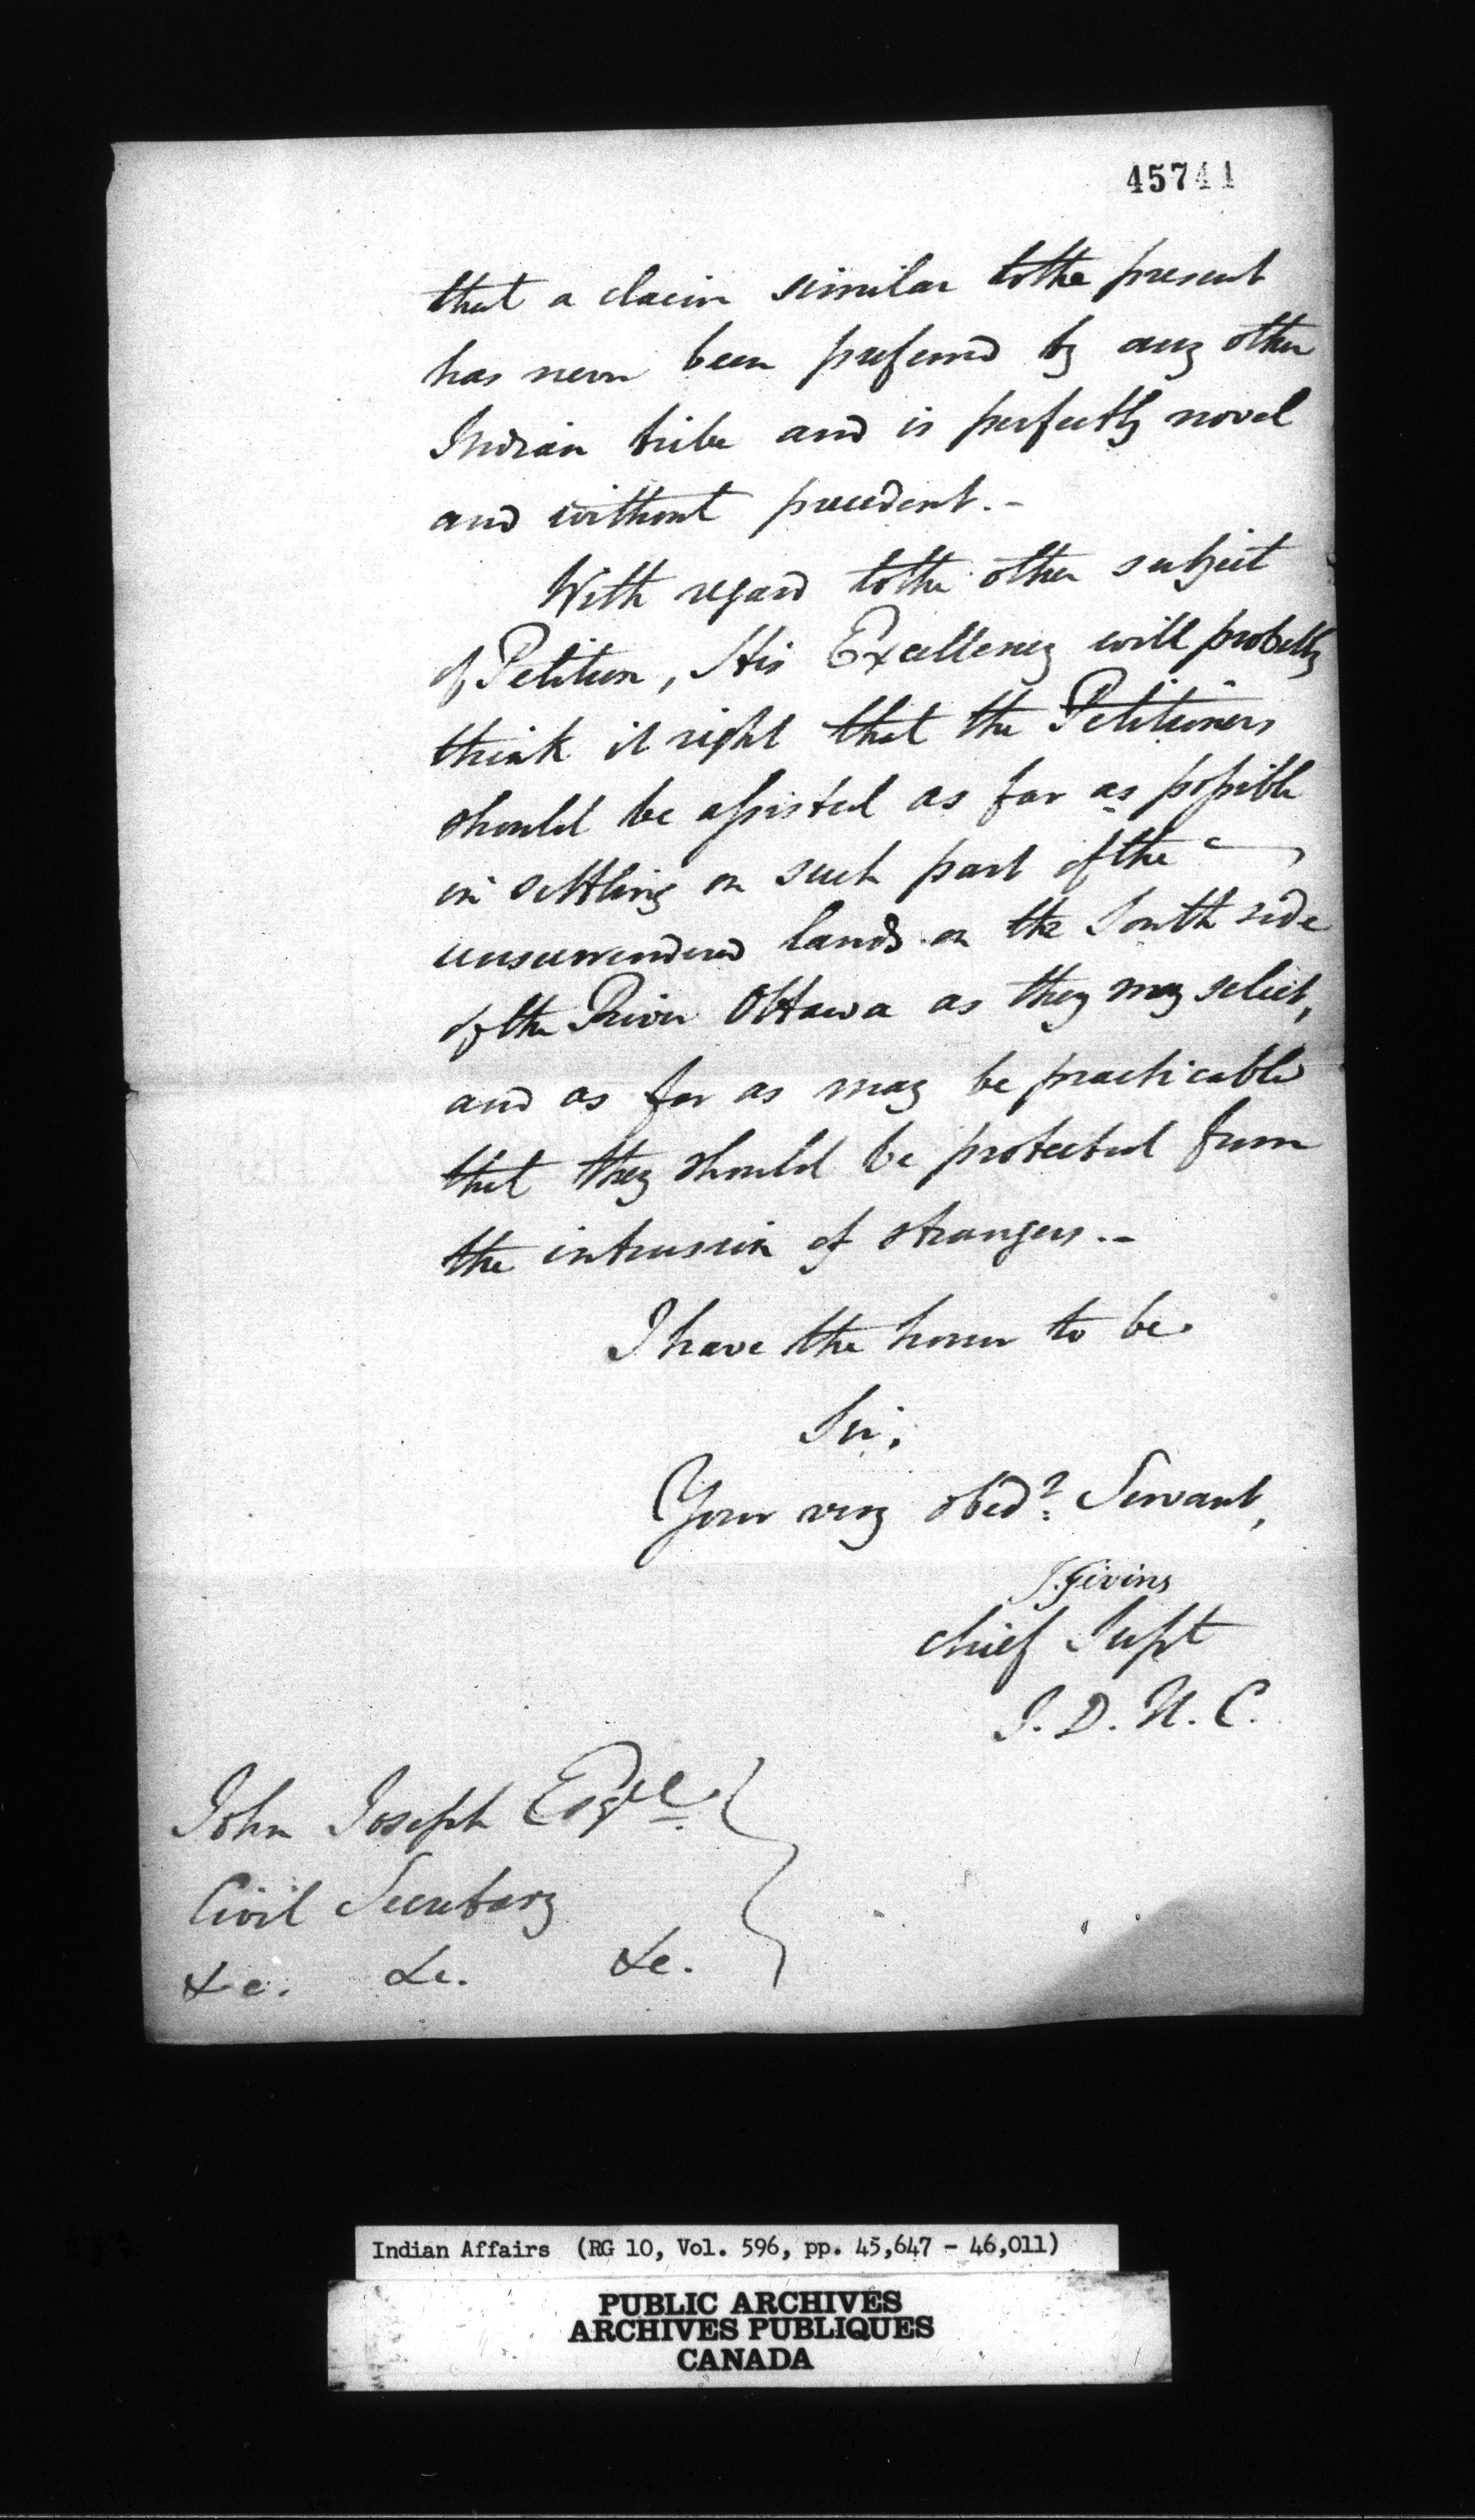 45741
that a claim similar to the present
has never been preferred by any other
Indian tribe and is perfectly novel
and without precedent.-
With regard to the other subject
of Petition, His Excellency will probably
think it right that the Petitioners
should be assisted as far as possible
in settling on such part of the
unsurrendered lands on the South side
of the River Ottawa as they may select,
and as far as may be practicable
that they should be protected from
the intrusion of strangers.-
I have the honor to be
Sir,
Your very obedt. Servant,
J. Givins
Chief Supt
I. D. U. C.
John Joseph Esqre.
Civil Secretary
&c. &c. &c.
Indian Affairs (RG 10, Vol. 596, pp. 45,647 - 46,011)
PUBLIC ARCHIVES
ARCHIVES PUBLIQUES
CANADA